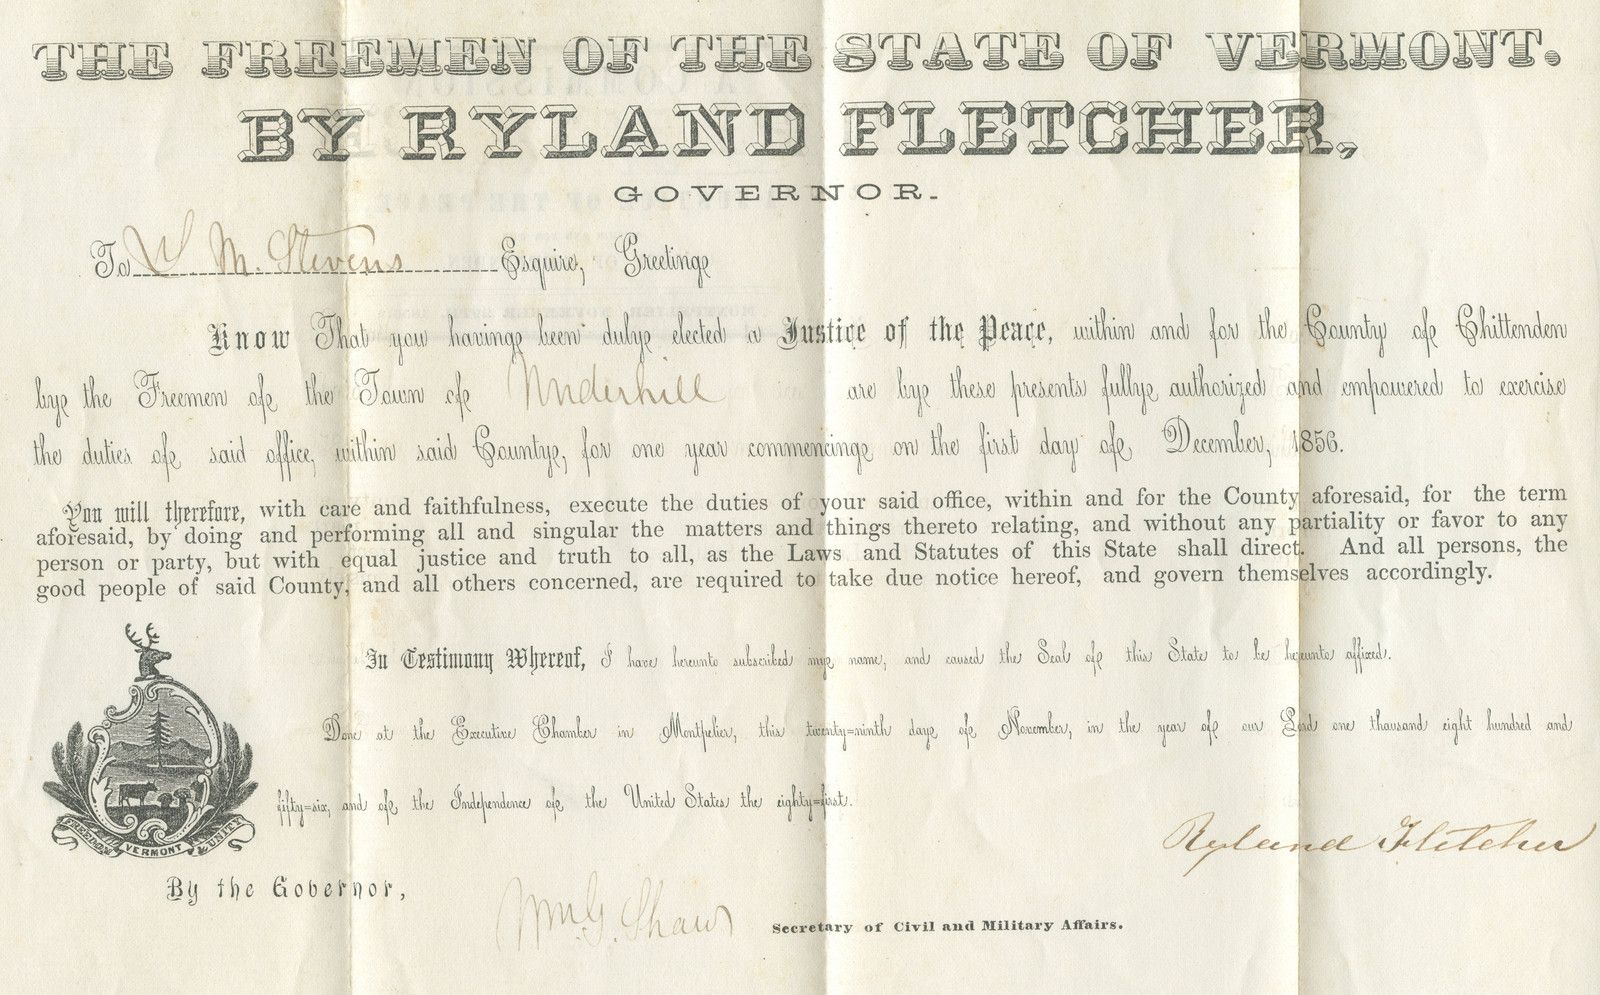 THE FREEMEN OF THE STATE OF VERMONT.
BY RYLAND FLETCHER,
GOVERNOR.
To M. Stevens Esquire, Greeting
Know That you having been duly elected a Justice of the Peace, within and for the County of Chittenden
by the Freemen of the Town of Underhill are by these presents fully authorized and empowered to exercise
the duties of said office, within said County, for one year commencing on the first day of December, 1856.
You will therefore, with care and faithfulness, execute the duties of your said office, within and for the County aforesaid, for the term
aforesaid, by doing and performing all and singular the matters and things thereto relating, and without any partiality or favor to any
person or party, but with equal justice and truth to all, as the Laws and Statutes of this State shall direct. And all persons, the
good people of said County, and all others concerned, are required to take due notice hereof, and govern themselves accordingly.
In Testimony Whereof, I have hereunto subscribed my name, and caused the Seal of this State to be hereunto affixed.
Done at the Executive Chamber in Montpelier, this twenty=ninth day of November, in the year of our Lord one thousand eight hundred and
fifty=six, and of the Independence of the United States the eighty=first.
FREEDOM VERMONT & UNITY
Ryland Fletcher
By the Governor,
Wm. G. Shaw Secretary of Civil and Military Affairs.